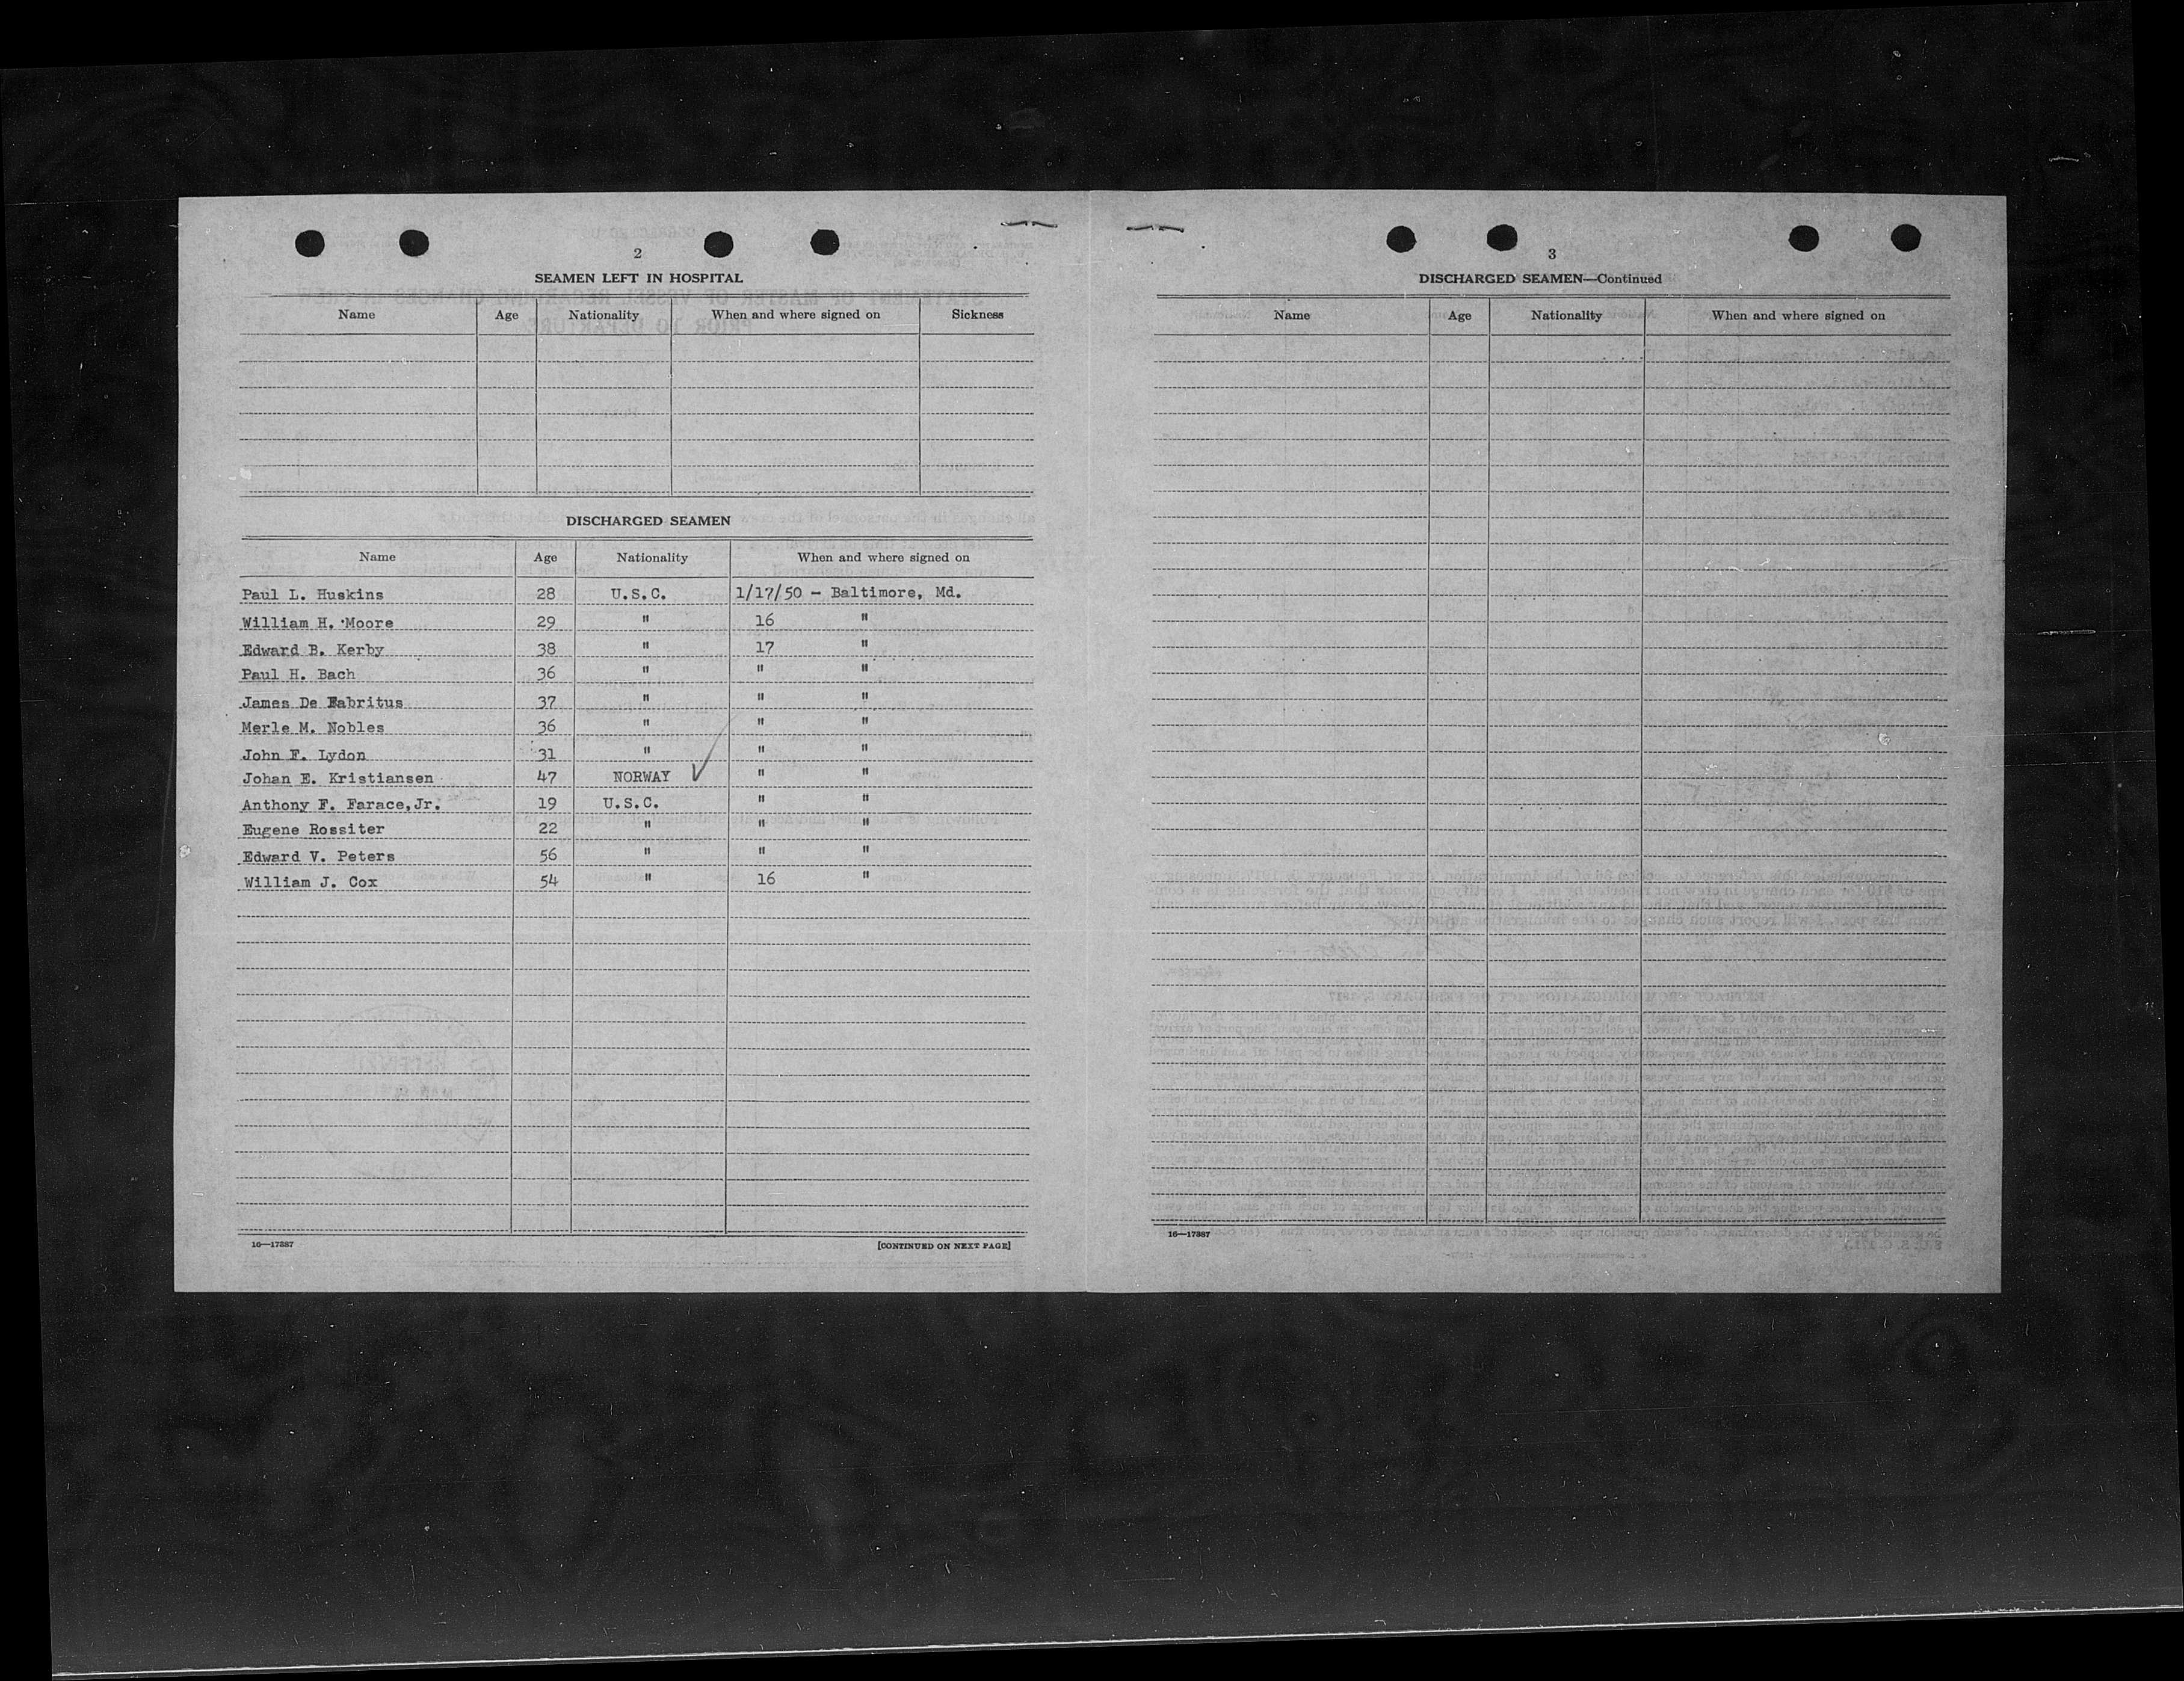 2
SEAMEN LEFT IN HOSPITAL
Name Age Nationality When and where signed on Sickness
DISCHARGED SEAMEN
Name Age Nationality When and where signed on
Paul L. Huskins 28 U.S.C. 1/17/50 - Baltimore, Md.
William H. Moore 29 " 16 "
Edward B. Kerby 38 " 17 "
Paul H. Bach 36 " " "
James De Fabritus 37 " " "
Merle M. Nobles 36 " " "
John F. Lydon 31 " " "
Johan E. Kristiansen 47 NORWAY ✓ " "
Anthony F. Farace,Jr. 19 U.S.C. " "
Eugene Rossiter 22 " " "
Edward V. Peters 56 " " "
William J. Cox 54 " 16 "
16—17387 [CONTINUED ON NEXT PAGE]
3
DISCHARGED SEAMEN—Continued
Name Age Nationality When and where signed on
16—17387